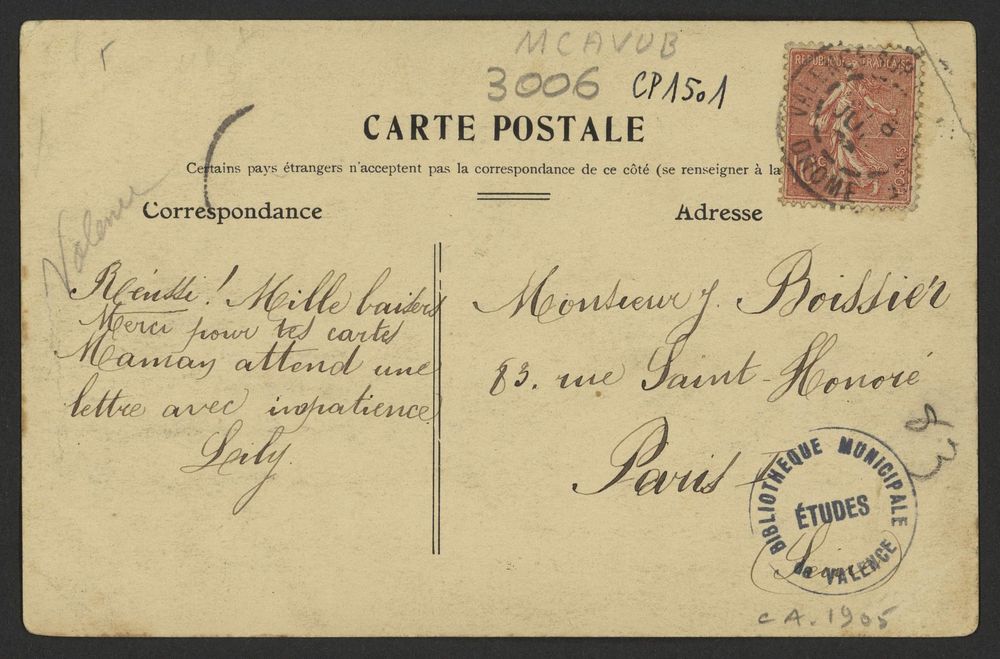 MCAVUB
3006 CP1501
CARTE POSTALE
Certains pays étrangers n'acceptent pas la correspondance de ce côté (se renseigner à la
Correspondance
Adresse
Valence
Réussi! Mille baisers
Merci pour tes cartes
Maman attend une
lettre avec impatience
Lily.
Monsieur J. Boissier
83. rue Saint-Honoré
Paris
(Seine)
REPUBLIQUE FRANÇAISE
POSTES
VALENCE
DROME
BIBLIOTHEQUE MUNICIPALE
ÉTUDES
de VALENCE
CA. 1905